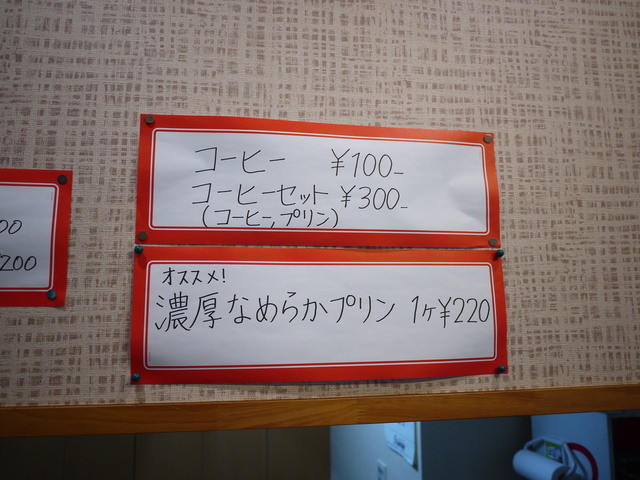 コーヒー ¥100-
コーヒーセット ¥300-
(コーヒー,プリン)
オススメ!
濃厚なめらかプリン 1ヶ¥220
00
200